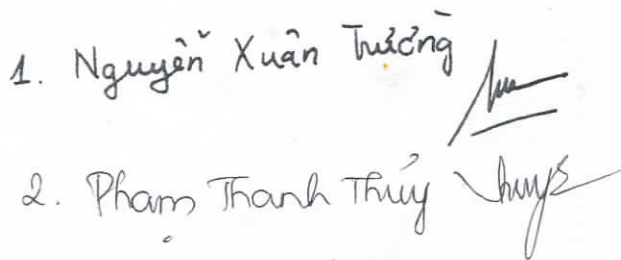 1. Nguyễn Xuân Trường
2. Phạm Thanh Thủy